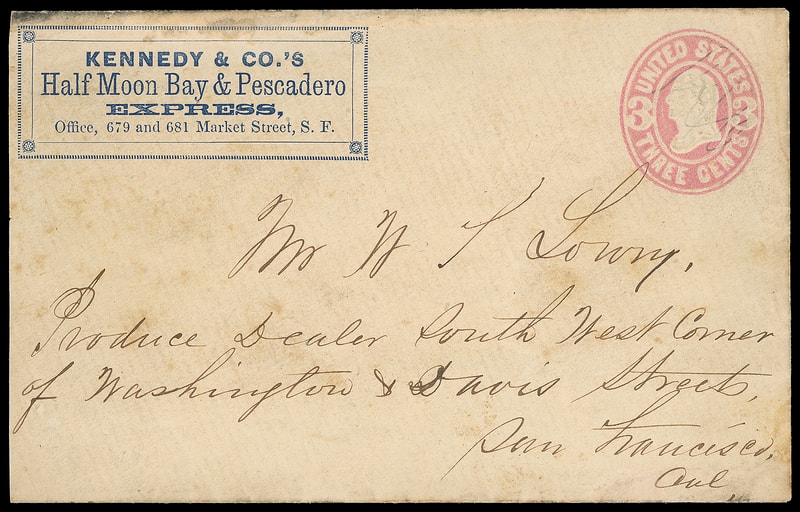 KENNEDY & CO.'S
Half Moon Bay & Pescadero
EXPRESS,
Office, 679 and 681 Market Street, S. F.
UNITED STATES
3 3
THREE CENTS
Mr W S Lowry,
Produce Dealer South West Corner
of Washington & Davis Streets,
San Francisco,
Cal